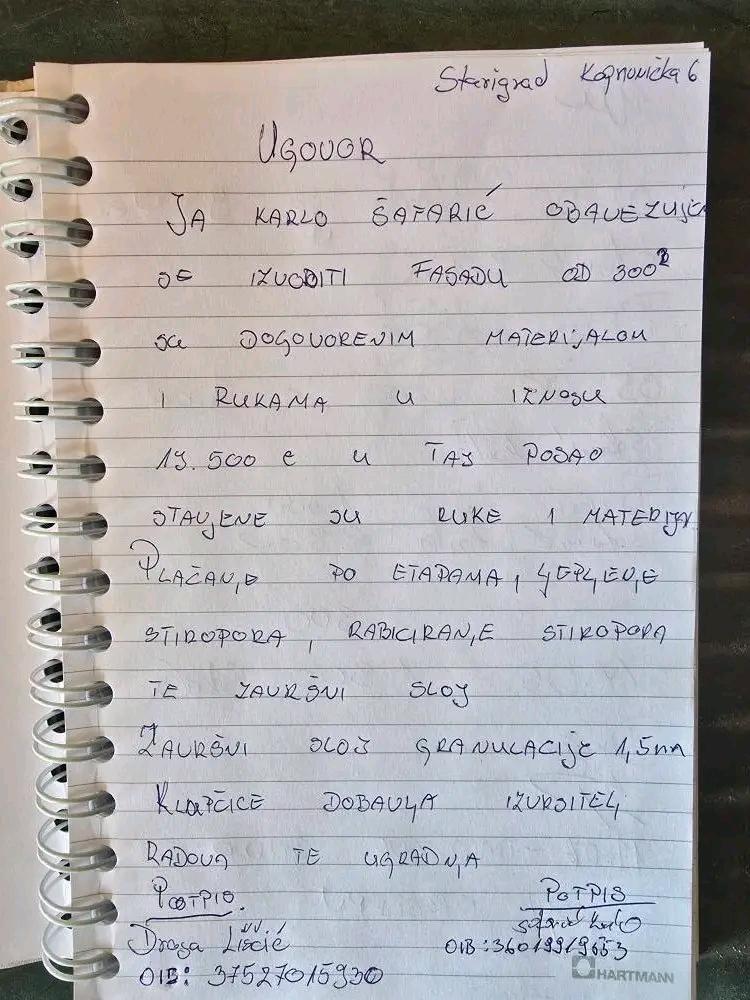 Starigrad Kopnonička 6
UGOVOR
JA KARLO ŠAFARIĆ OBAVEZUJEM
SE IZVODITI FASADU OD 300²
SA DOGOVORENIM MATERIJALOM
I RUKAMA U IZNOSU
19.500 € U TAJ POSAO
STAVJENE SU RUKE I MATERIJAL
PLAČANJE PO ETAPAMA, LJEPLJENJE
STIROPORA, RABICIRANJE STIROPORA
TE ZAVRŠNI SLOJ
ZAVRŠNI SLOJ GRANULACIJE 1,5mm
KLUPČICE DOBAVLJA IZVODITELJ
RADOVA TE UGRADNJA
POTPIS. POTPIS
Draga Liščić
OIB: 37527015930 OIB: 36019919653
HARTMANN